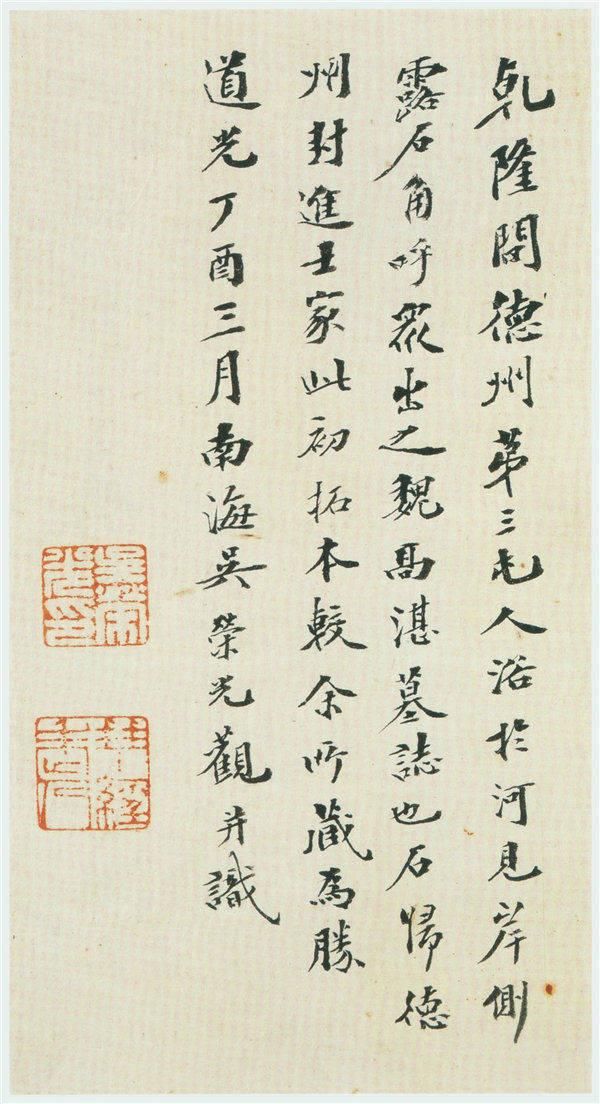 乹隆間德州第三屯人浴於河見岸側
露石角呼衆出之魏高湛墓誌也石歸德
州封進士家此初拓本較余所藏為勝
道光丁酉三月南海吳榮光觀并識